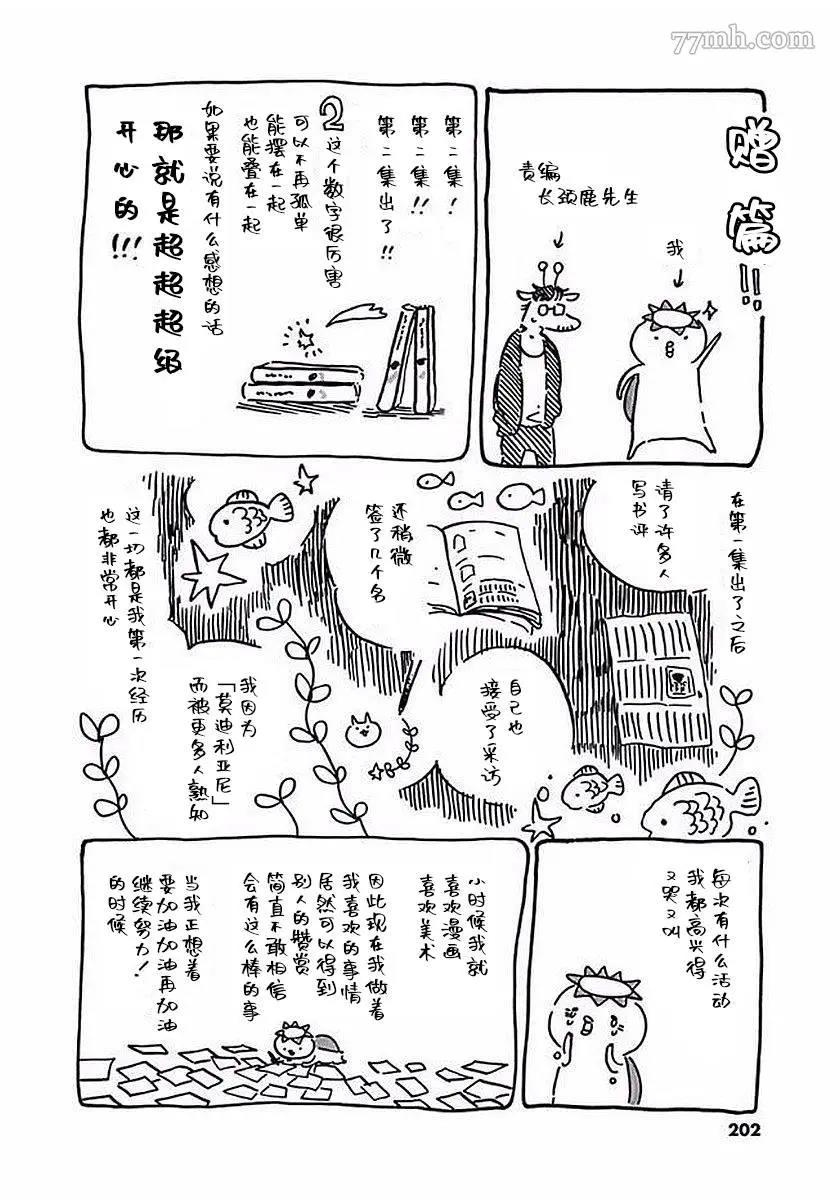 77mh.com
赠篇!!
责编
长颈鹿先生
我
第二集!
第二集!!
第二集出了!!
2这个数字很厉害
可以不再孤单
能摆在一起
也能叠在一起
如果要说有什么感想的话
那就是超超超级
开心的!!!
在第一集出了之后
请了许多人
写书评
还稍微
签了几千名
自己也
接受了采访
我因为
「莫迪利亚尼」
而被更多人熟知
这一切都是我第一次经历
也都非常开心
每次有什么活动
我都高兴得
又哭又叫
小时候我就
喜欢漫画
喜欢美术
因此现在我做着
我喜欢的事情
居然可以得到
别人的赞赏
简直不敢相信
会有这么棒的事
当我正想着
要加油加油再加油
继续努力!
的时候
202